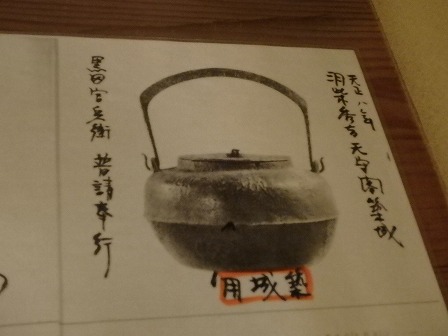 天正八年
羽柴秀吉天守閣築城
黒田官兵衛 普請奉行
築城用